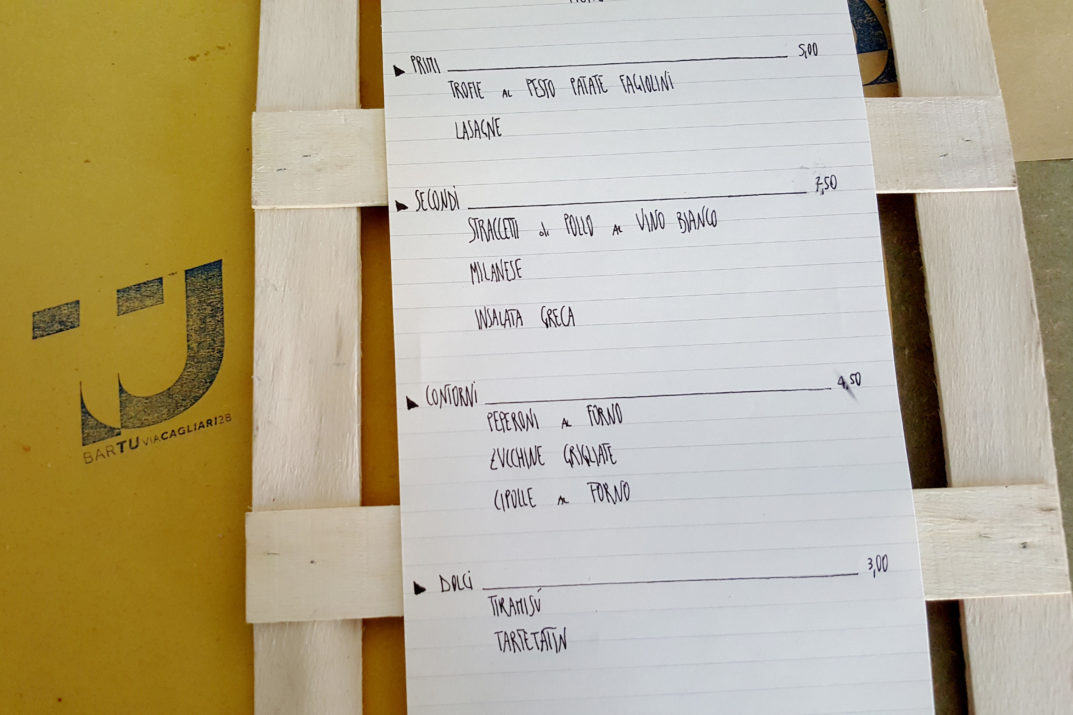 PRIMI 5,00
TROFIE AL PESTO PATATE FAGIOLINI
LASAGNE
SECONDI 7,50
STRACCETTI di POLLO AL VINO BIANCO
MILANESE
INSALATA GRECA
CONTORNI 4,50
PEPERONI AL FORNO
ZUCCHINE GRIGLIATE
CIPOLLE AL FORNO
DOLCI 3,00
TIRAMISÙ
TARTETATIN
TU
BARTUVIACAGLIARI28